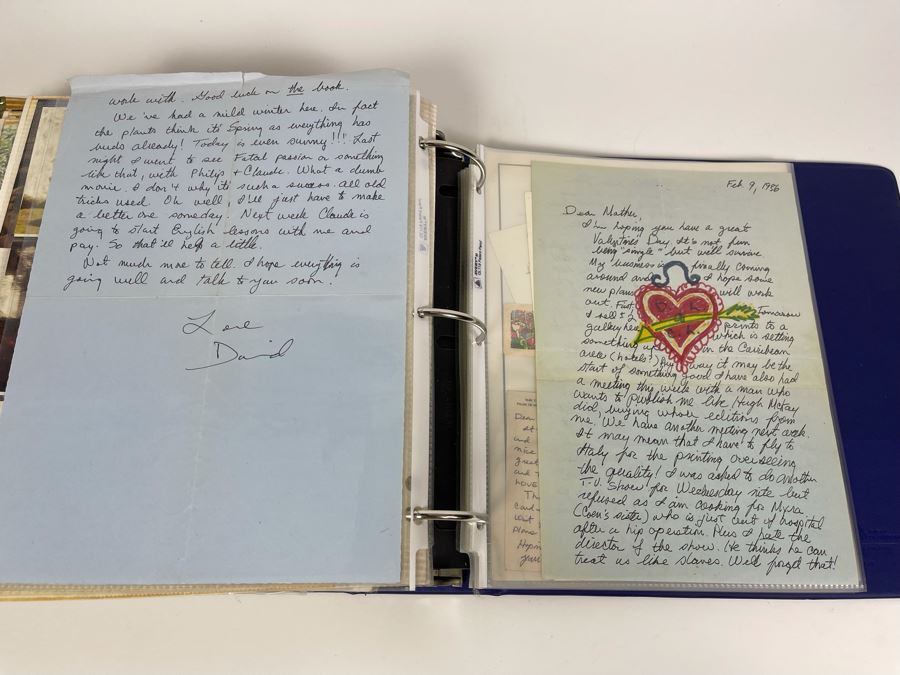 work with. Good luck on the book.
We've had a mild winter here. In fact
the plants think it's Spring as everything has
buds already! Today is even sunny!!! Last
night I went to see Fatal passion or something
like that, with Philip + Claude. What a dumb
movie. I don't why it's such a success. All old
tricks used. Oh well, I'll just have to make
a better one someday. Next week Claude is
going to start English lessons with me and
pay. So that'll help a little.
Not much more to tell. I hope everything is
going well and talk to you soon.
Love
David
Feb 9, 1986
Dear Mother,
I'm hoping you have a great
Valentines Day. It's not fun
being "single" but we'll survive.
My business is finally coming
around and I hope some
new plans will work
out. First, Tomorrow
I sell 5 prints to a
gallery here which is setting
something up in the Caribean
area (hotels?) way it may be the
start of something good. I have also had
a meeting this week with a man who
wants to publish me like Hugh McKay
did, buying whole editions from
me. We have another meeting next week.
It may mean that I have to fly to
Italy for the printing overseeing
the quality! I was asked to do another
T.V. Show for Wednesday nite but
refused as I am cooking for Myra
(Coen's sister) who is just out of hospital
after a hip operation. Plus I hate the
director of the show. He thinks he can
treat us like slaves. Well forget that!
Dear
It
and
nice
great
and
Th
card